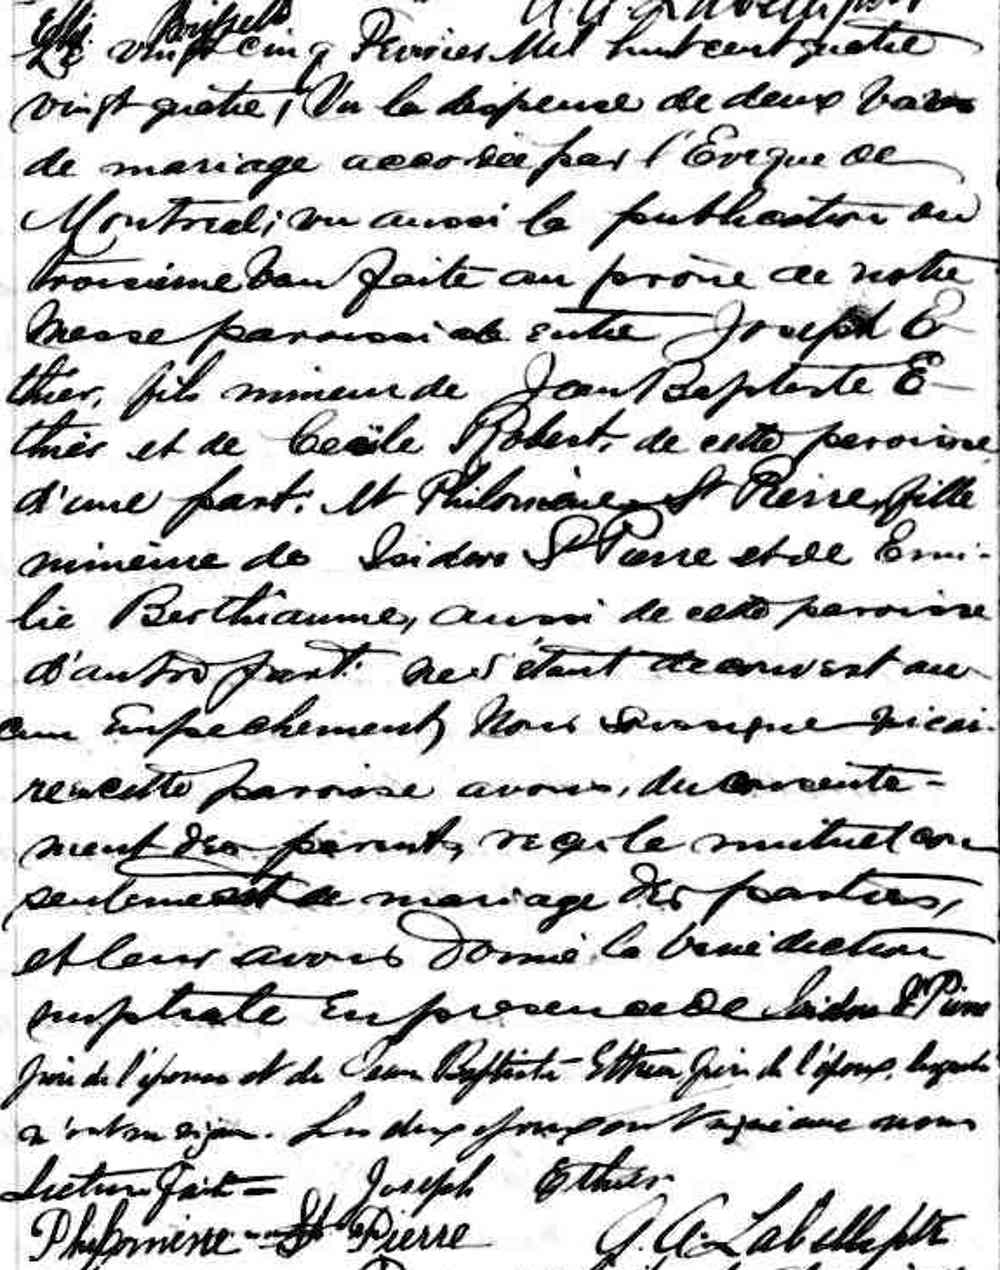 A. A. Labelle ptre
Le vingt cinq Fevrier Mil huit cent quatre
vingt quatre, Vu la dispense de deux bans
de mariage accordée par l'Evêque de
Montreal; vu aussi la publication du
troisième ban faite au prône de notre
Messe paroissiale entre Joseph E-
thier, fils mineur de Jean Baptiste E-
thier et de Cecile Robert, de cette paroisse
d'une part; et Philomène St Pierre, fille
mineure de Isidore St Pierre et de Emi-
lie Berthiaume, aussi de cette paroisse
d'autre part. ne s'étant decouvert au
cun Empechement, Nous soussigné vicai-
re en cette paroisse avons, du consente-
ment des parents, reçu le mutuel con
sentement de mariage des parties,
et leur avons donné la benediction
nuptiale En presence de Isidore St Pierre
père de l'épouse et de Jean Baptiste Ethier père de l'époux, lesquels
n'ont su signer. Les deux époux ont signé avec nous
Lecture faite = Joseph Ethier
Philomène St Pierre A. A. Labelle ptre